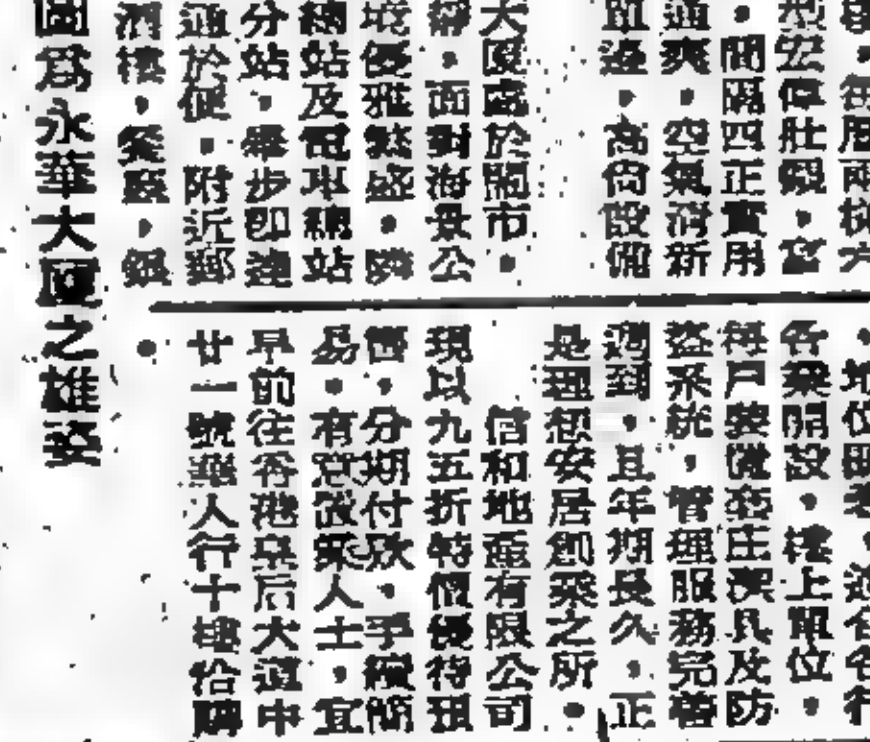 每層兩梯六
型宏偉壯觀，室
，間隔四正實用
通爽，空氣清新
，高尚設備
大厦處於鬧市，
靜，面對海景公
境優雅繁盛，隣
總站及電車總站
分站，舉步即達
通於便，附近郵
酒樓，餐廳，銀
，地位，適合各行
各業開設，樓上單位，
每戶裝潔具及防
盜系統，管理服務完善
週到，且年期長久，正
是理想安居創業之所。
信和地產有限公司
現以九五折特價優待預
，分期付款，手續簡
易，有意置業人士，宜
早前往香港皇后大道中
廿一號華人行十樓洽購
。
圖爲永華大厦之雄姿